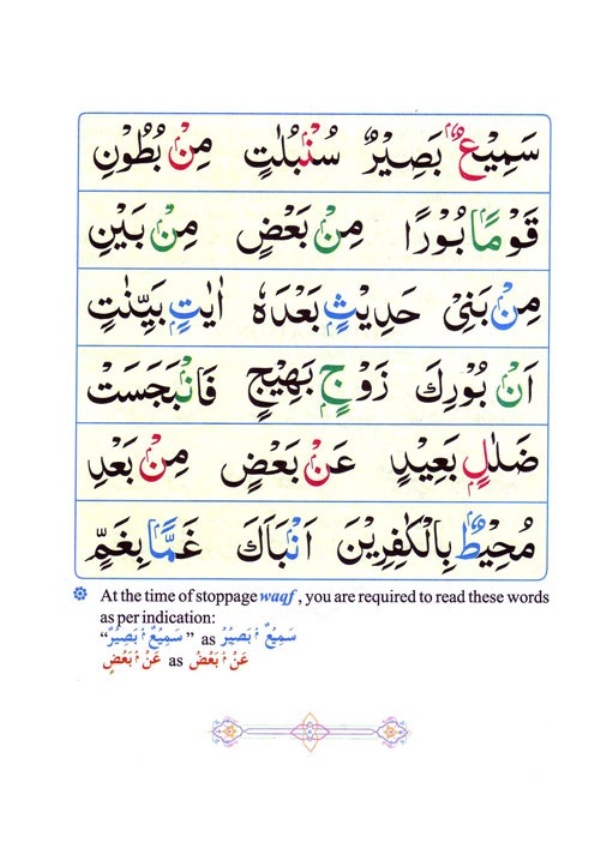 سَمِيْعٌۢ بَصِيْرٌ سُنْۢبُلٰتٍ مِنْۢ بُطُوْنِ
قَوْمًاۢ بُوْرًا مِنْۢ بَعْضٍ مِنْۢ بَيْنِ
مِنْۢ بَنِیْ حَدِيْثٍۭ بَعْدَهٗ اٰيٰتٍۭ بَيِّنٰتٍ
اَنْۢ بُوْرِكَ زَوْجٍۭ بَهِيْجٍ فَانْۢبَجَسَتْ
ضَلٰلٍۭ بَعِيْدٍ عَنْۢ بَعْضٍ مِنْۢ بَعْدِ
مُحِيْطٌۢ بِالْكٰفِرِيْنَ اَنْۢبَاَكَ غَمًّاۢ بِغَمٍّ
At the time of stoppage waqf, you are required to read these words
as per indication:
“سَمِيْعٌ ۢ بَصِيْرٌ” as سَمِيُعٌ ۢ بَصِيُرُ
عَنُ ۢ بَعُضٍ as عَنُ ۢ بَعُضُ